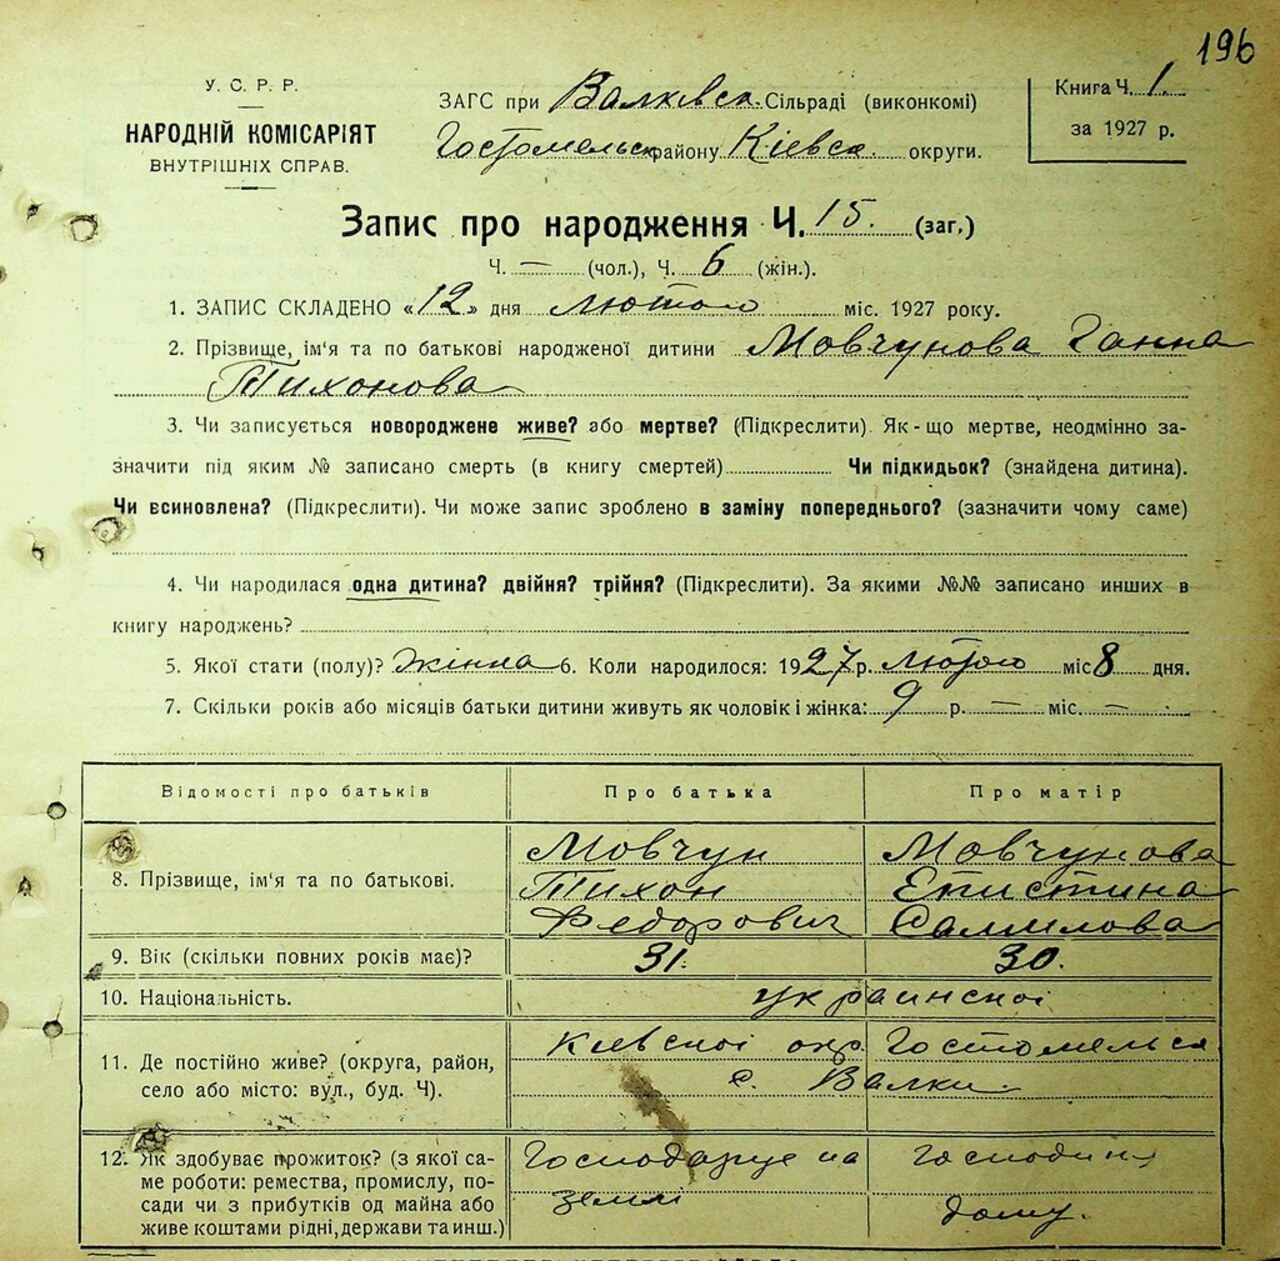 196
У. С. Р. Р.
НАРОДНІЙ КОМІСАРІЯТ
ВНУТРІШНІХ СПРАВ.
ЗАГС при Валківск. Сільраді (виконкомі)
Гостомельск району Кіевск. округи.
Книга Ч. 1.
за 1927 р.
Запис про народження Ч. 15. (заг.)
Ч. — (чол.), Ч. 6 (жін.).
1. ЗАПИС СКЛАДЕНО «12» дня лютого міс. 1927 року.
2. Прізвище, ім'я та по батькові народженої дитини Мовчунова Ганна
Тихонова
3. Чи записується новороджене живе? або мертве? (Підкреслити) Як-що мертве, неодмінно за-
значити під яким № записано смерть (в книгу смертей) Чи підкидьок? (знайдена дитина).
Чи всиновлена? (Підкреслити). Чи може запис зроблено в заміну попереднього? (зазначити чому саме)
4. Чи народилася одна дитина? двійня? трійня? (Підкреслити). За якими №№ записано инших в
книгу народжень?
5. Якої стати (полу)? жінка 6. Коли народилося: 1927 р. лютого міс 8 дня.
7. Скільки років або місяців батьки дитини живуть як чоловік і жінка: 9 р. — міс. —
Відомості про батьків Про батька Про матір
8. Прізвище, ім'я та по батькові.
Мовчун
Тихон
Федорович
Мовчунова
Епистина
9. Вік (скільки повних років має)? 31. 30.
10. Національність. украинскої
11. Де постійно живе? (округа, район,
село або місто: вул., буд. Ч).
Киевскої окр. Гостомельск
с. Валки
12. Як здобуває прожиток? (з якої са-
ме роботи: ремества, промислу, по-
сади чи з прибутків од майна або
живе коштами рідні, держави та инш.)
Господарує на
землі
дому.